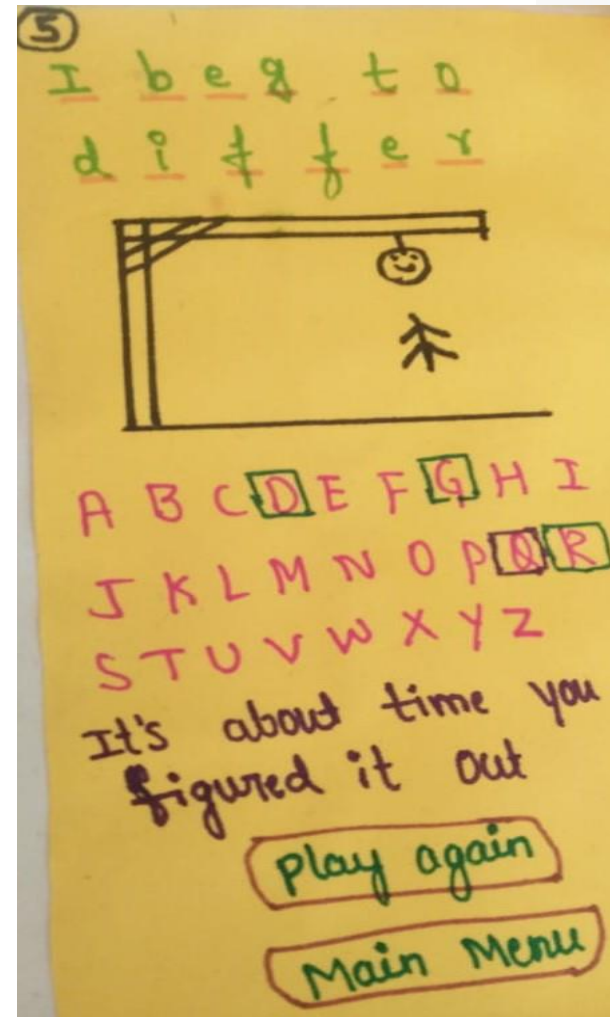 5
I beg to
differ
A B C D E F G H I
J K L M N O P Q R
S T U V W X Y Z
It's about time you
figured it out
Play again
Main Menu